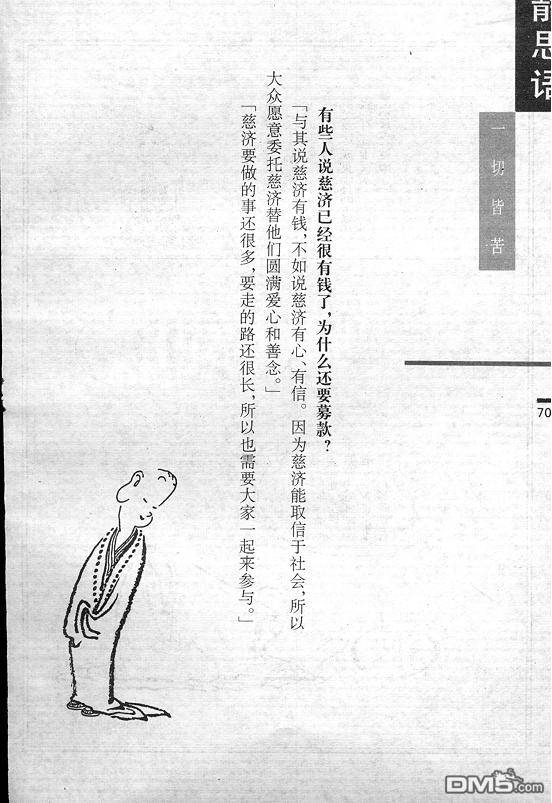 静思语
一切皆苦
有些人说慈济已经很有钱了，为什么还要募款？
「与其说慈济有钱，不如说慈济有心、有信。因为慈济能取信于社会，所以
大众愿意委托慈济替他们圆满爱心和善念。」
「慈济要做的事还很多，要走的路还很长，所以也需要大家一起来参与。」
70
DM5.com